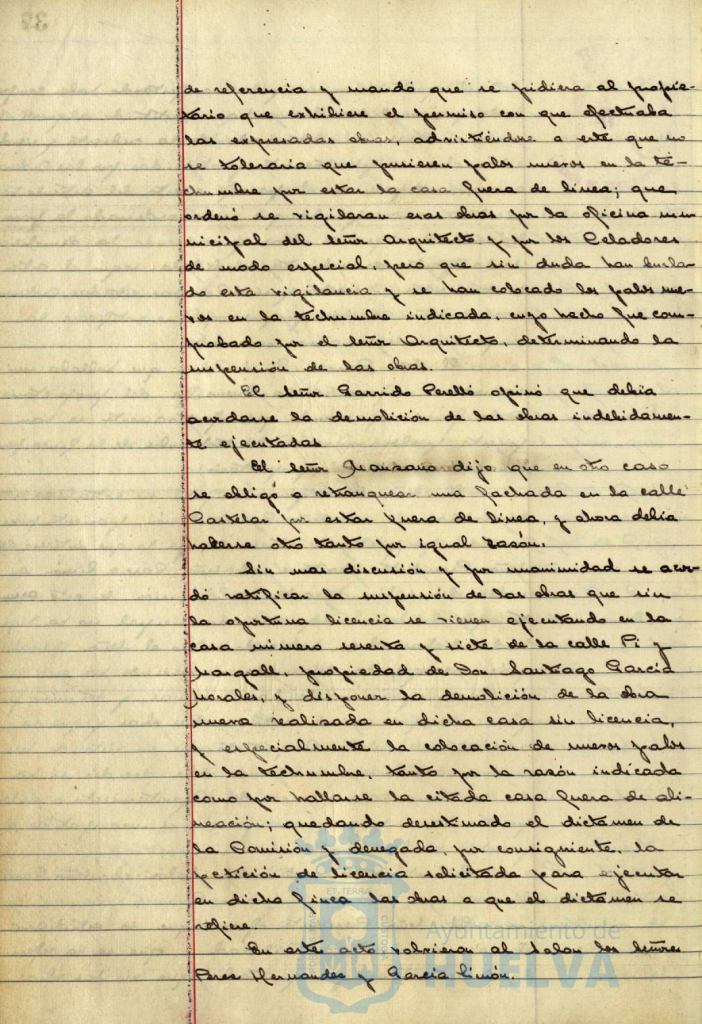 de referencia y mandó que se pidiera al propie-
tario que exhibiese el permiso con que efectuaba
las expresadas obras, advirtiéndose a este que no
se toleraria que pusiesen palos nuevos en la te-
chumbre por estar la casa fuera de linea; que
ordenó se vigilaran esas obras por la oficina mu-
nicipal del Señor Arquitecto y por los Celadores
de modo especial, pero que sin duda han burla-
do esta vigilancia y se han colocado los palos nue-
vos en la techumbre indicada, cuyo hecho fue com-
probado por el Señor Arquitecto, determinando la
suspensión de las obras.
El Señor Garrido Perelló opinó que debia
acordarse la demolición de las obras indebidamen-
te ejecutadas
El Señor Manzano dijo que en otro caso
se obligó a retranquear una fachada en la calle
Castelar por estar fuera de linea, y ahora debia
haberse otro tanto por igual razón.
Sin mas discusión y por unanimidad se acor-
dó ratificar la suspensión de las obras que sin
la oportuna licencia se vienen ejecutando en la
casa número sesenta y siete de la calle Pi y
Margall, propiedad de Don Santiago Garcia
Morales, y disponer la demolición de la obra
nueva realizada en dicha casa sin licencia,
y especialmente la colocación de nuevos palos
en la techumbre, tanto por la razón indicada
como por hallarse la citada casa fuera de ali-
neación; quedando desestimado el dictamen de
la Comisión y denegada, por consiguiente, la
petición de licencia solicitada para ejecutar
en dicha finca las obras a que el dictamen se
refiere.
En este acto volvieron al Salon los Señores
Perez Hernandez y Garcia Limón.
Ayuntamiento de
HUELVA